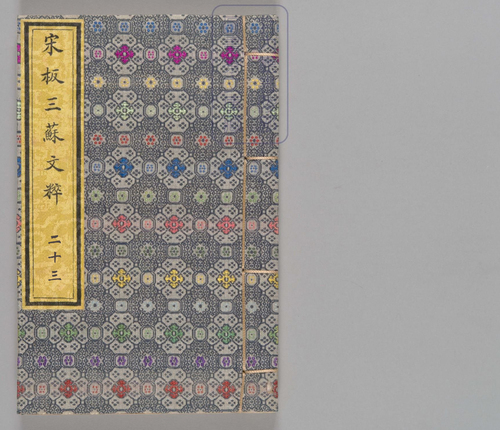 宋板三蘇文粹 二十三